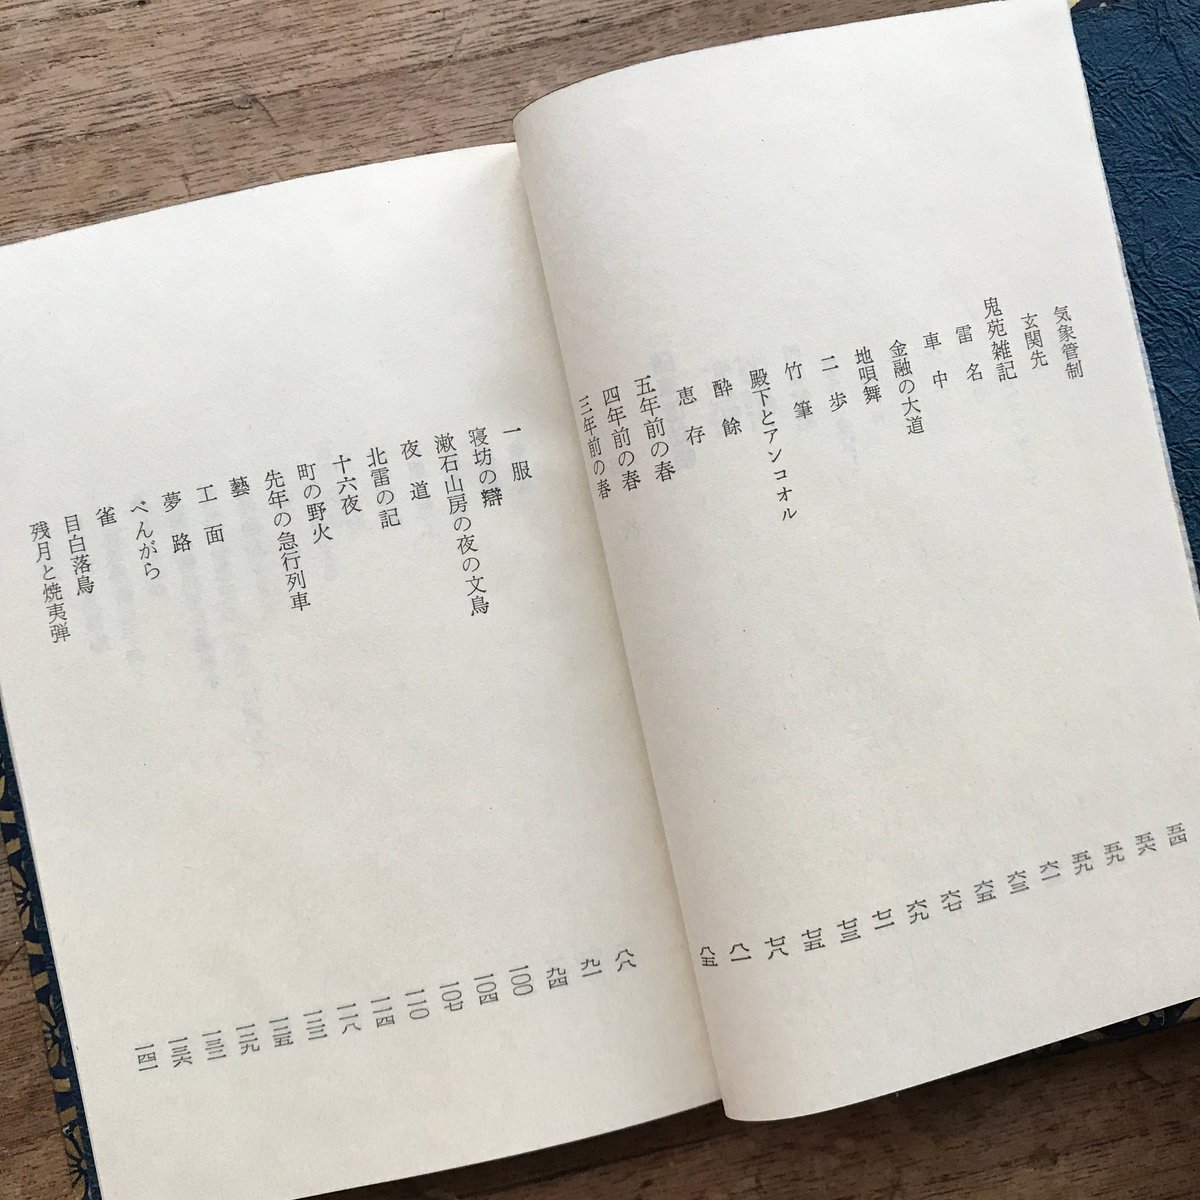 気象管制 五四
玄関先 五六
鬼苑雑記 五九
雷名 五九
車中 六一
金融の大道 六三
地唄舞 六五
二歩 六七
竹筆 六九
殿下とアンコオル 七一
酔餘 七三
恵存 七五
五年前の春 七八
四年前の春 八一
三年前の春 八五
一服 八八
寝坊の辯 九一
漱石山房の夜の文鳥 九四
夜道 一〇〇
北雷の記 一〇四
十六夜 一〇七
町の野火 一一〇
先年の急行列車 一一四
藝 一一八
工面 一二三
夢路 一二五
べんがら 一二九
雀 一三二
目白落鳥 一三六
残月と焼夷弾 一四一